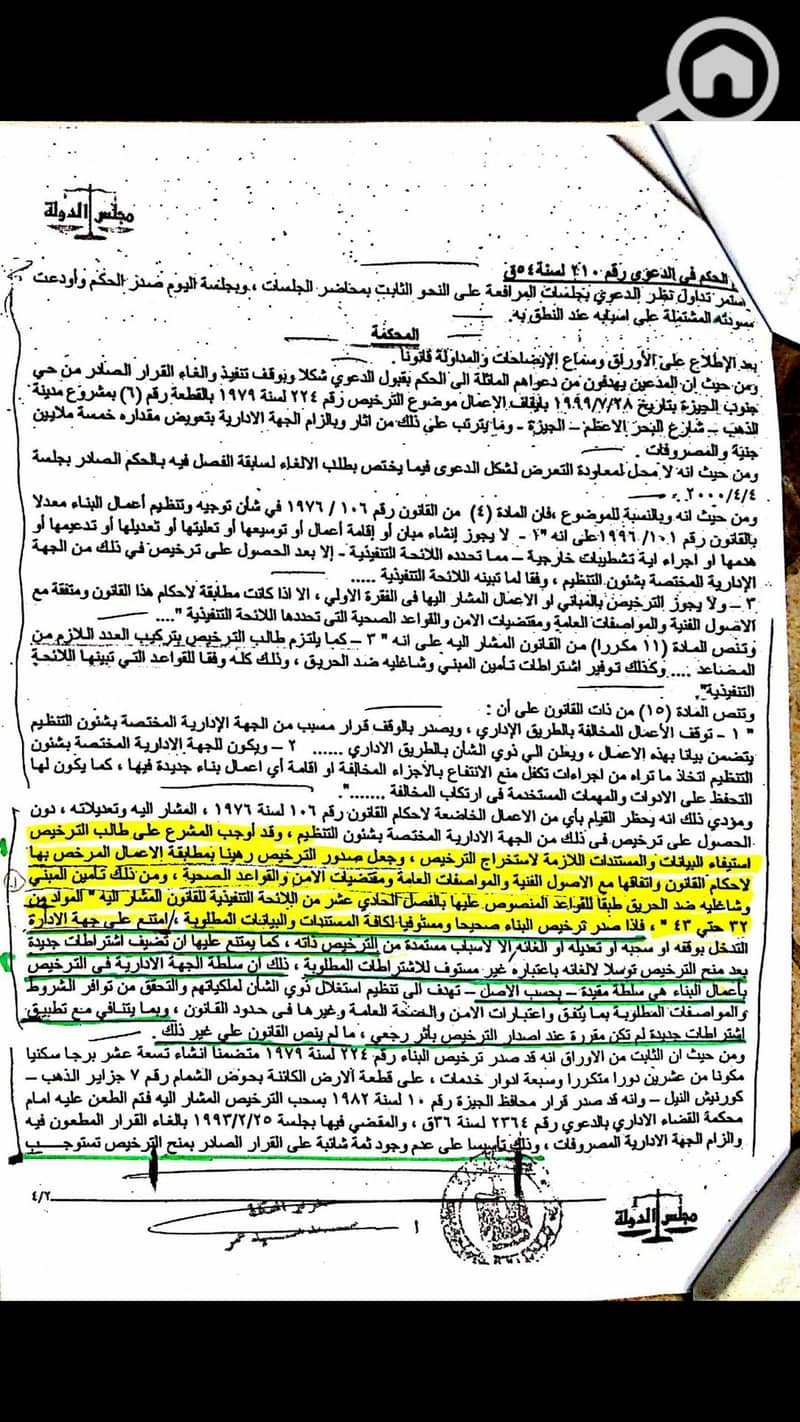 مجلس الدولة
الحكم في الدعوى رقم ٢١٠ لسنة ٥٤ق
استمر تداول نظر الدعوي بجلسات المرافعة على النحو الثابت بمحاضر الجلسات ، وبجلسة اليوم صدر الحكم وأودعت
مسودته المشتملة على اسبابه عند النطق به.
المحكمة
بعد الإطلاع على الأوراق وسماع الإيضاحات والمداولة قانونا.
ومن حيث ان المدعين يهدفون من دعواهم الماثلة الى الحكم بقبول الدعوي شكلا وبوقف تنفيذ والغاء القرار الصادر من حي
جنوب الجيزة بتاريخ ١٩٩٩/٧/٢٨ بايقاف الاعمال موضوع الترخيص رقم ٢٢٤ لسنة ١٩٧٩ بالقطعة رقم (٦) بمشروع مدينة
الذهب – شارع البحر الاعظم – الجيزة - وما يترتب على ذلك من اثار وبالزام الجهة الادارية بتعويض مقداره خمسة ملايين
جنية والمصروفات .
ومن حيث انه لا محل لمعاودة التعرض لشكل الدعوى فيما يختص بطلب الالغاء لسابقة الفصل فيه بالحكم الصادر بجلسة
٢٠٠٠/٤/٤ .
ومن حيث انه وبالنسبة للموضوع ،فان المادة (٤) من القانون رقم ١٠٦ / ١٩٧٦ في شأن توجيه وتنظيم أعمال البناء معدلا
بالقانون رقم ١٩٩٦/١٠١على انه "١ - لا يجوز إنشاء مبان أو إقامة أعمال أو توسيعها أو تعليتها أو تعديلها أو تدعيمها أو
هدمها او اجراء اية تشطيبات خارجية – مما تحدده اللائحة التنفيذية - إلا بعد الحصول على ترخيص في ذلك من الجهة
الإدارية المختصة بشئون التنظيم ، وفقا لما تبينه اللائحة التنفيذية .....
٣ – ولا يجوز الترخيص بالمباني او الاعمال المشار اليها فى الفقرة الاولي ، الا اذا كانت مطابقة لاحكام هذا القانون ومتفقة مع
الاصول الفنية والمواصفات العامة ومقتضيات الامن والقواعد الصحية التى تحددها اللائحة التنفيذية "....
وتنص المادة (١١ مكررا) من القانون المشار اليه على انه " ٣ – كما يلتزم طالب الترخيص بتركيب العدد اللازم من
المصاعد .... وكذلك توفير اشتراطات تأمين المبني وشاغليه ضد الحريق ، وذلك كله وفقا للقواعد التي تبينها اللائحة
التنفيذية".
وتنص المادة (١٥) من ذات القانون على أن :
" ١ – توقف الأعمال المخالفة بالطريق الإداري ، ويصدر بالوقف قرار مسبب من الجهة الإدارية المختصة بشئون التنظيم
يتضمن بيانا بهذه الاعمال ، ويعلن الي ذوي الشأن بالطريق الاداري ...... ٢ – ويكون للجهة الادارية المختصة بشئون
التنظيم اتخاذ ما تراه من اجراءات تكفل منع الانتفاع بالأجزاء المخالفة او اقامة أي اعمال بناء جديدة فيها ، كما يكون لها
التحفظ على الادوات والمهمات المستخدمة فى ارتكاب المخالفة .......".
ومؤدي ذلك انه يحظر القيام بأي من الاعمال الخاضعة لاحكام القانون رقم ١٠٦ لسنة ١٩٧٦ ، المشار اليه وتعديلاته ، دون
الحصول على ترخيص فى ذلك من الجهة الادارية المختصة بشئون التنظيم ، وقد أوجب المشرع على طالب الترخيص
استيفاء البيانات والمستندات اللازمة لاستخراج الترخيص ، وجعل صدور الترخيص رهينا بمطابقة الاعمال المرخص بها
لاحكام القانون واتفاقها مع الاصول الفنية والمواصفات العامة ومقتضيات الامن والقواعد الصحية ، ومن ذلك تأمين المبني
وشاغليه ضد الحريق طبقا للقواعد المنصوص عليها بالفصل الحادي عشر من اللائحة التنفيذية للقانون المشار اليه " المواد من
٣٢ حتي ٤٣ " ، فاذا صدر ترخيص البناء صحيحا ومستوفيا لكافة المستندات والبيانات المطلوبة ، امتنع على جهة الادارة
التدخل بوقفه او سحبه او تعديله او الغائه إلا لاسباب مستمدة من الترخيص ذاته ، كما يمتنع عليها ان تضيف اشتراطات جديدة
بعد منح الترخيص توسلا لالغائه باعتباره غير مستوف للاشتراطات المطلوبة ، ذلك ان سلطة الجهة الادارية في الترخيص
بأعمال البناء هي سلطة مقيدة – بحسب الاصل – تهدف الى تنظيم استغلال ذوي الشأن لملكياتهم والتحقق من توافر الشروط
والمواصفات المطلوبة بما يتفق واعتبارات الامن والصحة العامة وغيرها فى حدود القانون ، وبما يتنافي مع تطبيق
إشتراطات جديدة لم تكن مقررة عند اصدار الترخيص بأثر رجعي ، ما لم ينص القانون علي غير ذلك .
ومن حيث ان الثابت من الاوراق انه قد صدر ترخيص البناء رقم ٢٢٤ لسنة ١٩٧٩ متضمنا انشاء تسعة عشر برجا سكنيا
مكونا من عشرين دورا متكررا وسبعة ادوار خدمات ، على قطعة الارض الكائنة بحوض الشمام رقم ٧ جزاير الذهب –
كورنيش النيل – وانه قد صدر قرار محافظ الجيزة رقم ١٠ لسنة ١٩٨٢ بسحب الترخيص المشار اليه فتم الطعن عليه امام
محكمة القضاء الاداري بالدعوي رقم ٢٣٦٤ لسنة ٣٦ق ، والمقضي فيها بجلسة ١٩٩٣/٢/٢٥ بالغاء القرار المطعون فيه
والزام الجهة الادارية المصروفات ، وذلك تأسيسا على عدم وجود ثمة شائبة على القرار الصادر بمنح الترخيص تستوجب
٤/٢
مجلس الدولة